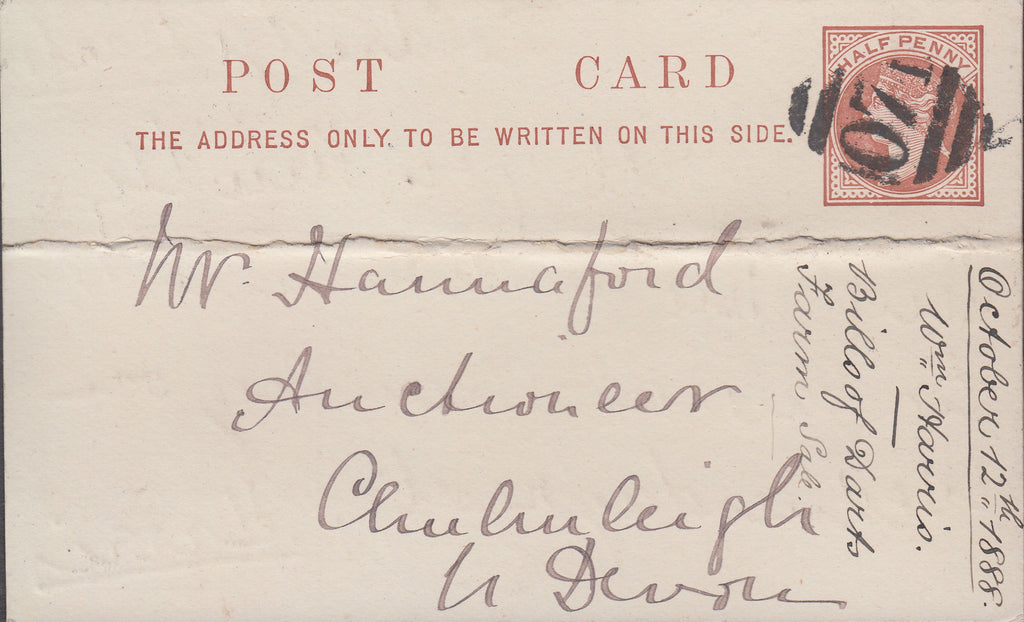 POST CARD
THE ADDRESS ONLY TO BE WRITTEN ON THIS SIDE.
HALF PENNY
071
Mr. Hannaford
Auctioneer
Chulmleigh
N Devon
October 12th 1888.
Wm Harris.
Bill of Darts
Farm Sale.